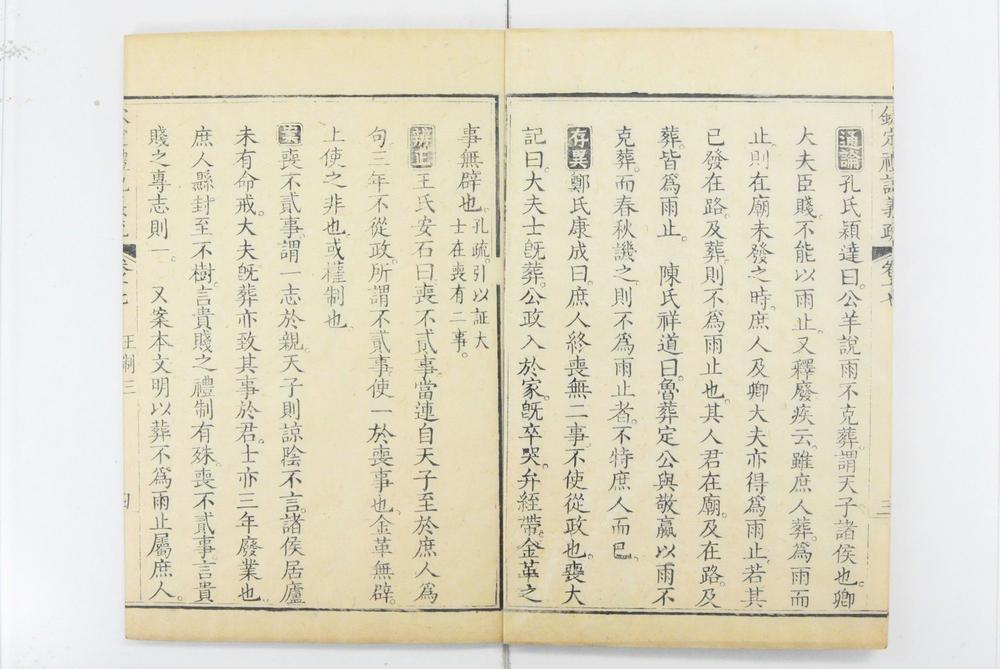 欽定禮記義疏 卷十七 三
通論 孔氏穎達曰。公羊說雨不克葬。謂天子諸侯也。卿
大夫臣賤。不能以雨止。又釋廢疾云。雖庶人葬。爲雨而
止。則在廟未發之時。庶人及卿大夫亦得爲雨止。若其
已發在路。及葬則不爲雨止也。其人君在廟。及在路。及
葬。皆爲雨止。 陳氏祥道曰。魯葬定公與敬嬴。以雨不
克葬。而春秋譏之。則不爲雨止者。不特庶人而已。
存異 鄭氏康成曰。庶人終喪無二事。不使從政也。喪大
記曰。大夫士旣葬。公政入於家。旣卒哭。弁絰帶。金革之
事無辟也。孔疏。引以証大
士在喪有二事。
辨正 王氏安石曰。喪不貳事。當連自天子至於庶人爲
句。三年不從政。所謂不貳事。使一於喪事也。金革無辟。
上使之非也。或權制也。
案 喪不貳事。謂一志於親。天子則諒陰不言。諸侯居廬
未有命戒。大夫旣葬亦致其事於君。士亦三年廢業也。
庶人縣封至不樹。言貴賤之禮制有殊。喪不貳事。言貴
賤之專志則一。 又案本文明以葬不爲雨止屬庶人。
王制三 四